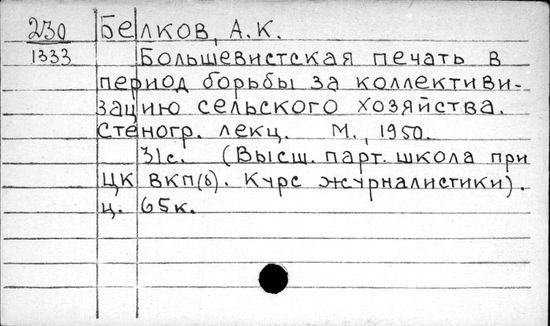 230 Белков, А.К.
1333 Большевистская печать в
период борьбы за коллективи-
зацию сельского хозяйства.
Стеногр. лекц. М., 1950.
31с. (Высш. парт. школа при
ЦК ВКП(б). Курс журналистики).
ц. 65к.